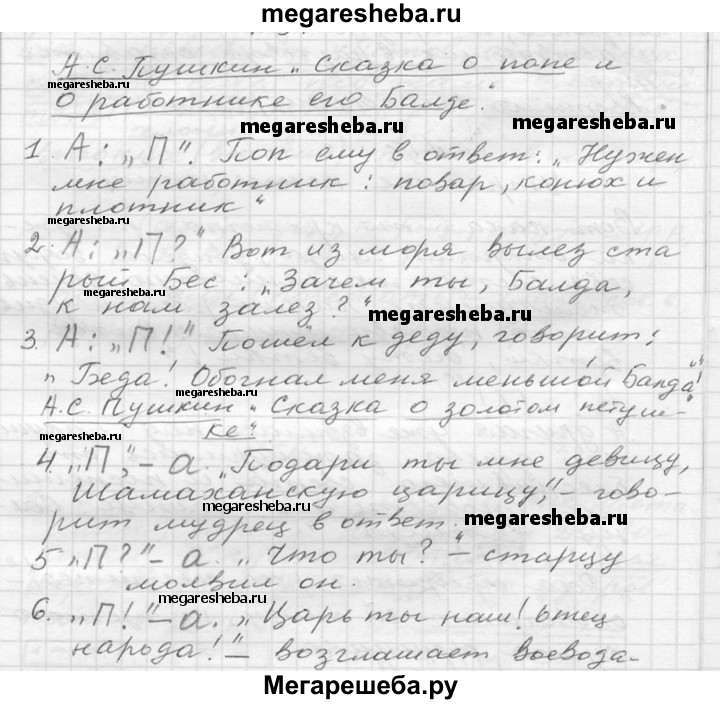 megaresheba.ru
А.С. Пушкин „Сказка о попе и
о работнике его Балде".
megaresheba.ru
megaresheba.ru
1. А: „П". Поп ему в ответ: „Нужен
мне работник: повар, конюх и
плотник"
megaresheba.ru
2. А: „П?" Вот из моря вылез ста
рый Бес: „Зачем ты, Балда,
megaresheba.ru
к нам залез?"
megaresheba.ru
3. А: „П!" Пошёл к деду, говорит:
megaresheba.ru
„Беда! Обогнал меня меньшой Балда!"
megaresheba.ru
А.С. Пушкин „Сказка о золотом петуш-
ке".
megaresheba.ru
4. „П", – а. „Подари ты мне девицу,
Шамаханскую царицу", – гово-
рит мудрец в ответ.
megaresheba.ru
5 „П?" – а. „Что ты?" – старцу
молвил он.
megaresheba.ru
6. „П!" – а. „Царь ты наш! отец
народа!" – возглашает воевода.
megaresheba.ru
Мегарешеба.ру